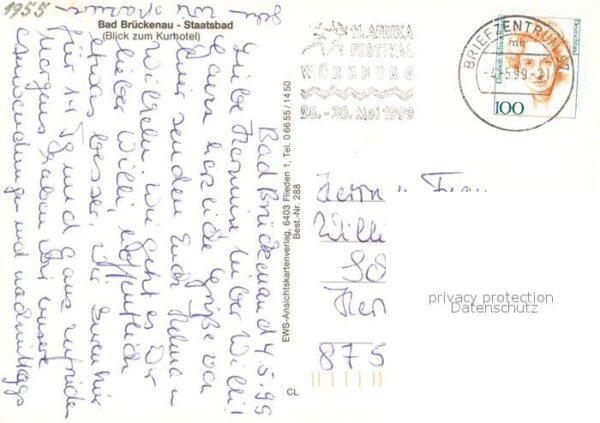 1955
Bad Brückenau - Staatsbad
(Blick zum Kurhotel)
Bad Brückenau d 4.5.99
Liebe Hermine lieber Willi!
Ganz herzliche Grüße von
hier senden Euch Helma u
Wilhelm. Wie geht es Dir
lieber Willi, hoffentlich
etwas besser. Wir sind hier
für 14 Tg und ganz zufrieden
Morgens haben wir unsere
Anwendungen und nachmittags
EWS-Ansichtskartenverlag, 6403 Flieden 1, Tel. 06655/1450
Best.-Nr. 288
CL
11. AFRIKA
FESTIVAL
WÜRZBURG
26.-30. Mai 1999
BRIEFZENTRUM 97
mk
-4.-5.99-21
Deutschland
100
Herrn u Frau
Willi
privacy protection
Datenschutz
875